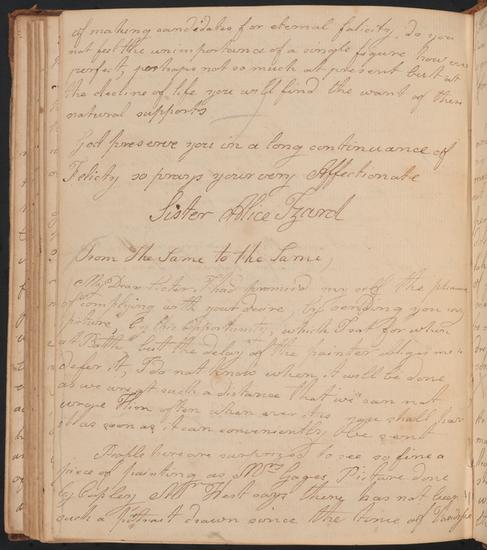 of making candidates for eternal falicity, do you
not feel the unimportance of a single figure how ever
perfect, perhaps not so much at present but at
the decline of life you will find the want of these
natural supports
God preserve you in a long continuance of
Felicity so prays your very Affectionate
Sister Alice Izard
From the Same to the Same,
My Dear Sister, I had promised my self the pleasure
of complying with your desire, by sending you my
picture, by this opportunity, which I sat for when
at Bath but the delay of the painter obliges me to
defer it, I do not know when it will be done
as we are at such a distance that we can not
urge him often when ever it is you shall have
it as soon as it can conveniently be sent
People here are surprized to see so fine a
piece of painting as Mrs Gages Picture done
by Copley Mr West says there has not been
such a Portrait drawn since the time of Vandyke